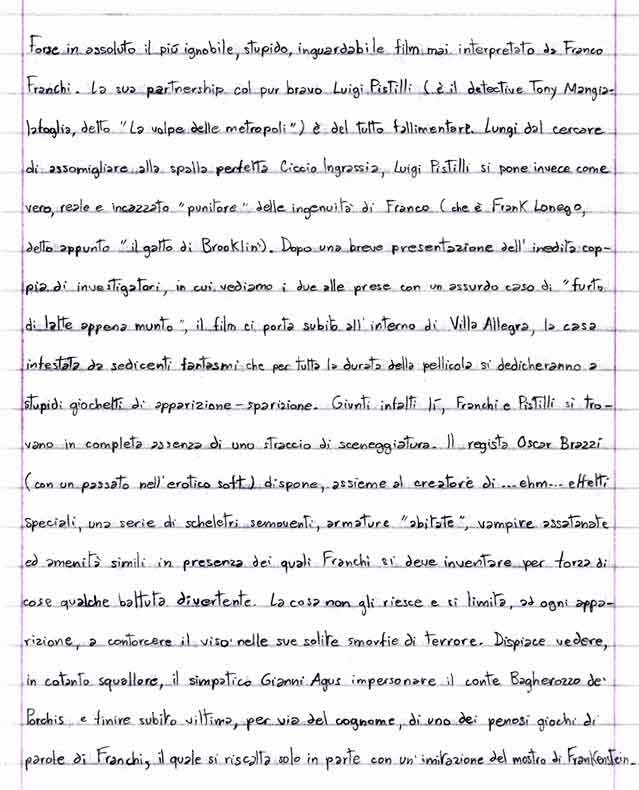 Forse in assoluto il più ignobile, stupido, inguardabile film mai interpretato da Franco
Franchi. La sua partnership col pur bravo Luigi Pistilli (è il detective Tony Mangia-
lafoglia, detto "La volpe delle metropoli") è del tutto fallimentare. Lungi dal cercare
di assomigliare alla spalla perfetta Ciccio Ingrassia, Luigi Pistilli si pone invece come
vero, reale e incazzato "punitore" delle ingenuità di Franco (che è Frank Lonego,
detto appunto "il gatto di Brooklin"). Dopo una breve presentazione dell'inedita cop-
pia di investigatori, in cui vediamo i due alle prese con un assurdo caso di "furto
di latte appena munto", il film ci porta subito all'interno di Villa Allegra, la casa
infestata da sedicenti fantasmi che per tutta la durata della pellicola si dedicheranno a
stupidi giochetti di apparizione-sparizione. Giunti infatti lí, Franchi e Pistilli si tro-
vano in completa assenza di uno straccio di sceneggiatura. Il regista Oscar Brazzi
(con un passato nell'erotico soft) dispone, assieme al creatore di ...ehm... effetti
speciali, una serie di scheletri semoventi, armature "abitate", vampire assatanate
ed amenità simili in presenza dei quali Franchi si deve inventare per forza di
cose qualche battuta divertente. La cosa non gli riesce e si limita, ad ogni appa-
rizione, a contorcere il viso nelle sue solite smorfie di terrore. Dispiace vedere,
in cotanto squallore, il simpatico Gianni Agus impersonare il conte Bagherozzo de'
Porchis e finire subito vittima, per via del cognome, di uno dei penosi giochi di
parole di Franchi, il quale si riscatta solo in parte con un'imitazione del mostro di Frankenstein.